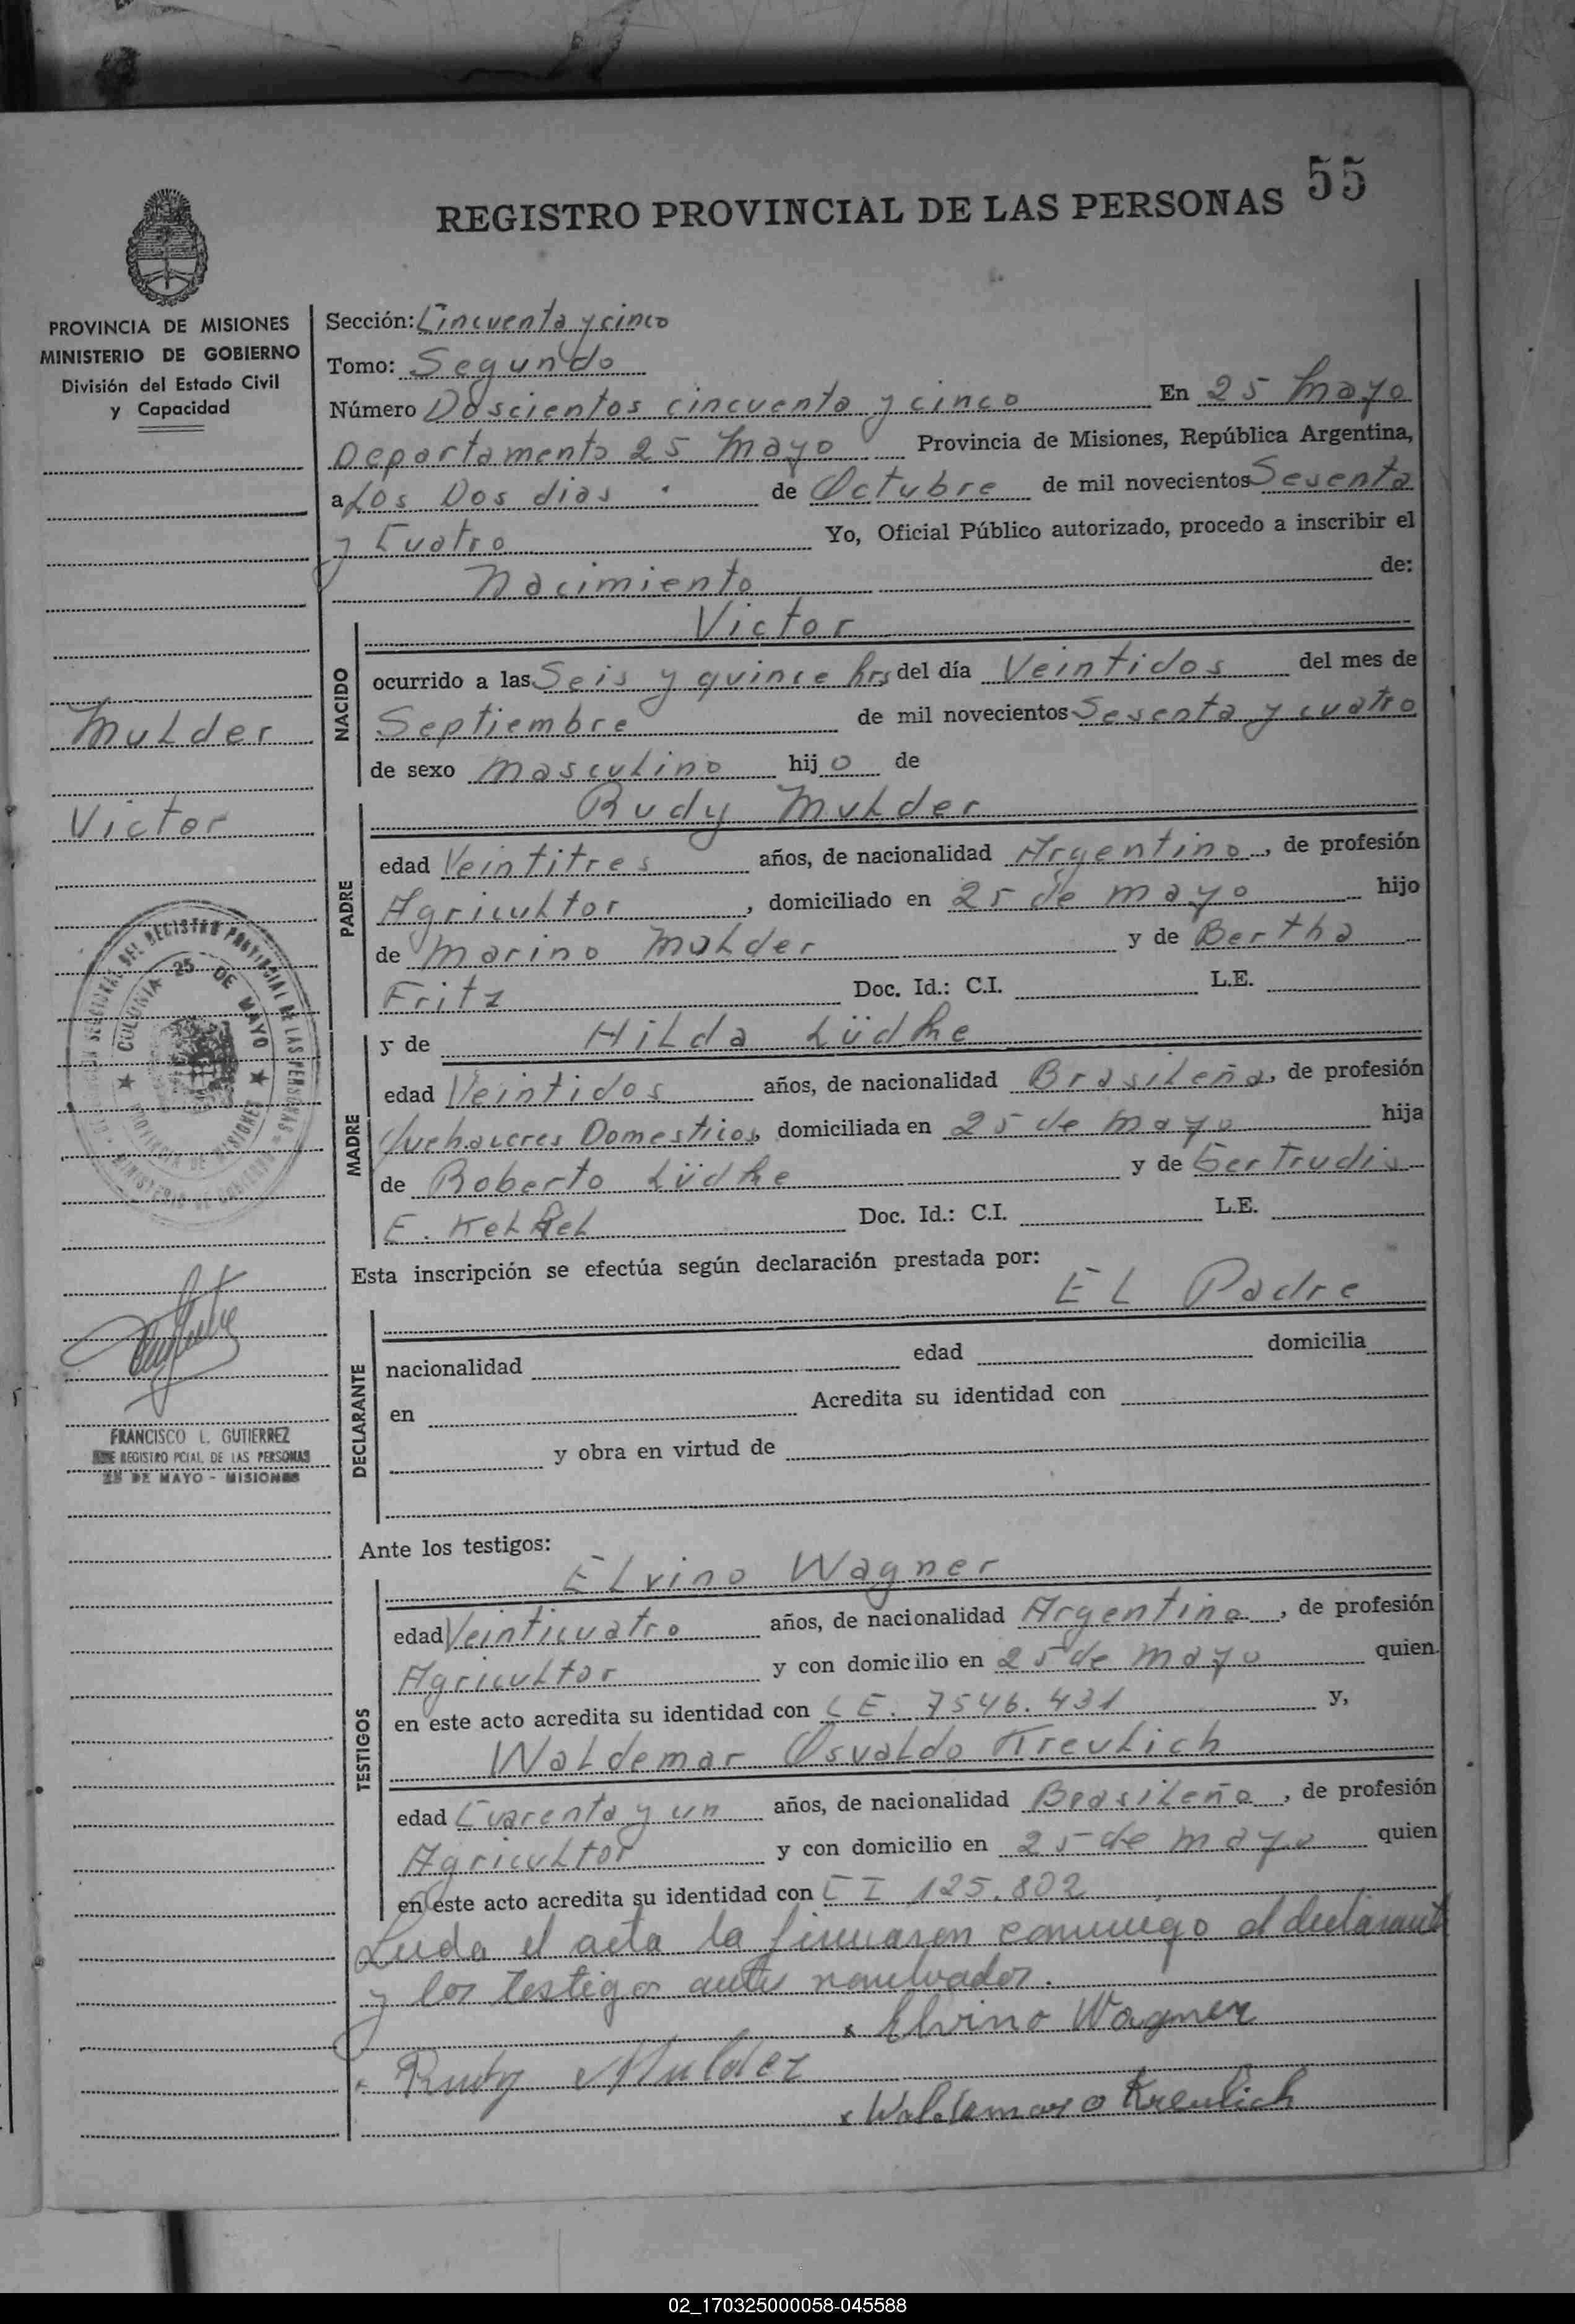 55
REGISTRO PROVINCIAL DE LAS PERSONAS
PROVINCIA DE MISIONES
MINISTERIO DE GOBIERNO
División del Estado Civil
y Capacidad
Mulder
Victor
COLONIA 25 DE MAYO
PROVINCIA DE MISIONES
FRANCISCO L. GUTIERREZ
REGISTRO PCIAL. DE LAS PERSONAS
25 DE MAYO - MISIONES
Sección: Cincuenta y cinco
Tomo: Segundo
Número Doscientos cincuenta y cinco En 25 Mayo
Departamento 25 Mayo Provincia de Misiones, República Argentina,
a Los Dos dias de Octubre de mil novecientos Sesenta
y Cuatro Yo, Oficial Público autorizado, procedo a inscribir el
Nacimiento de:
NACIDO
Victor
ocurrido a las Seis y quince hrs del día Veintidos del mes de
Septiembre de mil novecientos Sesenta y cuatro
de sexo Masculino hijo de
PADRE
Rudy Mulder
edad Veintitres años, de nacionalidad Argentino, de profesión
Agricultor, domiciliado en 25 de Mayo hijo
de Marino Mulder y de Bertha
Fritz Doc. Id.: C.I. L.E.
MADRE
y de Hilda Lüdke
edad Veintidos años, de nacionalidad Brasileña, de profesión
Quehaceres Domesticos, domiciliada en 25 de Mayo hija
de Roberto Lüdke y de Gertrudis
E. Doc. Id.: C.I. L.E.
Esta inscripción se efectúa según declaración prestada por:
El Padre
DECLARANTE
nacionalidad edad domicilia
en Acredita su identidad con
y obra en virtud de
Ante los testigos:
TESTIGOS
Elvino Wagner
edad Veinticuatro años, de nacionalidad Argentina, de profesión
Agricultor y con domicilio en 25 de Mayo quien
en este acto acredita su identidad con L E. 7546.431 y,
Waldemar Osvaldo Kreulich
edad Cuarenta y un años, de nacionalidad Brasileña, de profesión
Agricultor y con domicilio en 25 de Mayo quien
en este acto acredita su identidad con C I 125.802
Leida el acta la firmaron conmigo el declarante
y los testigos antes nombrados.
x Elvino Wagner
x Rudy Mulder
x Waldemar O Kreulich
02_170325000058-045588